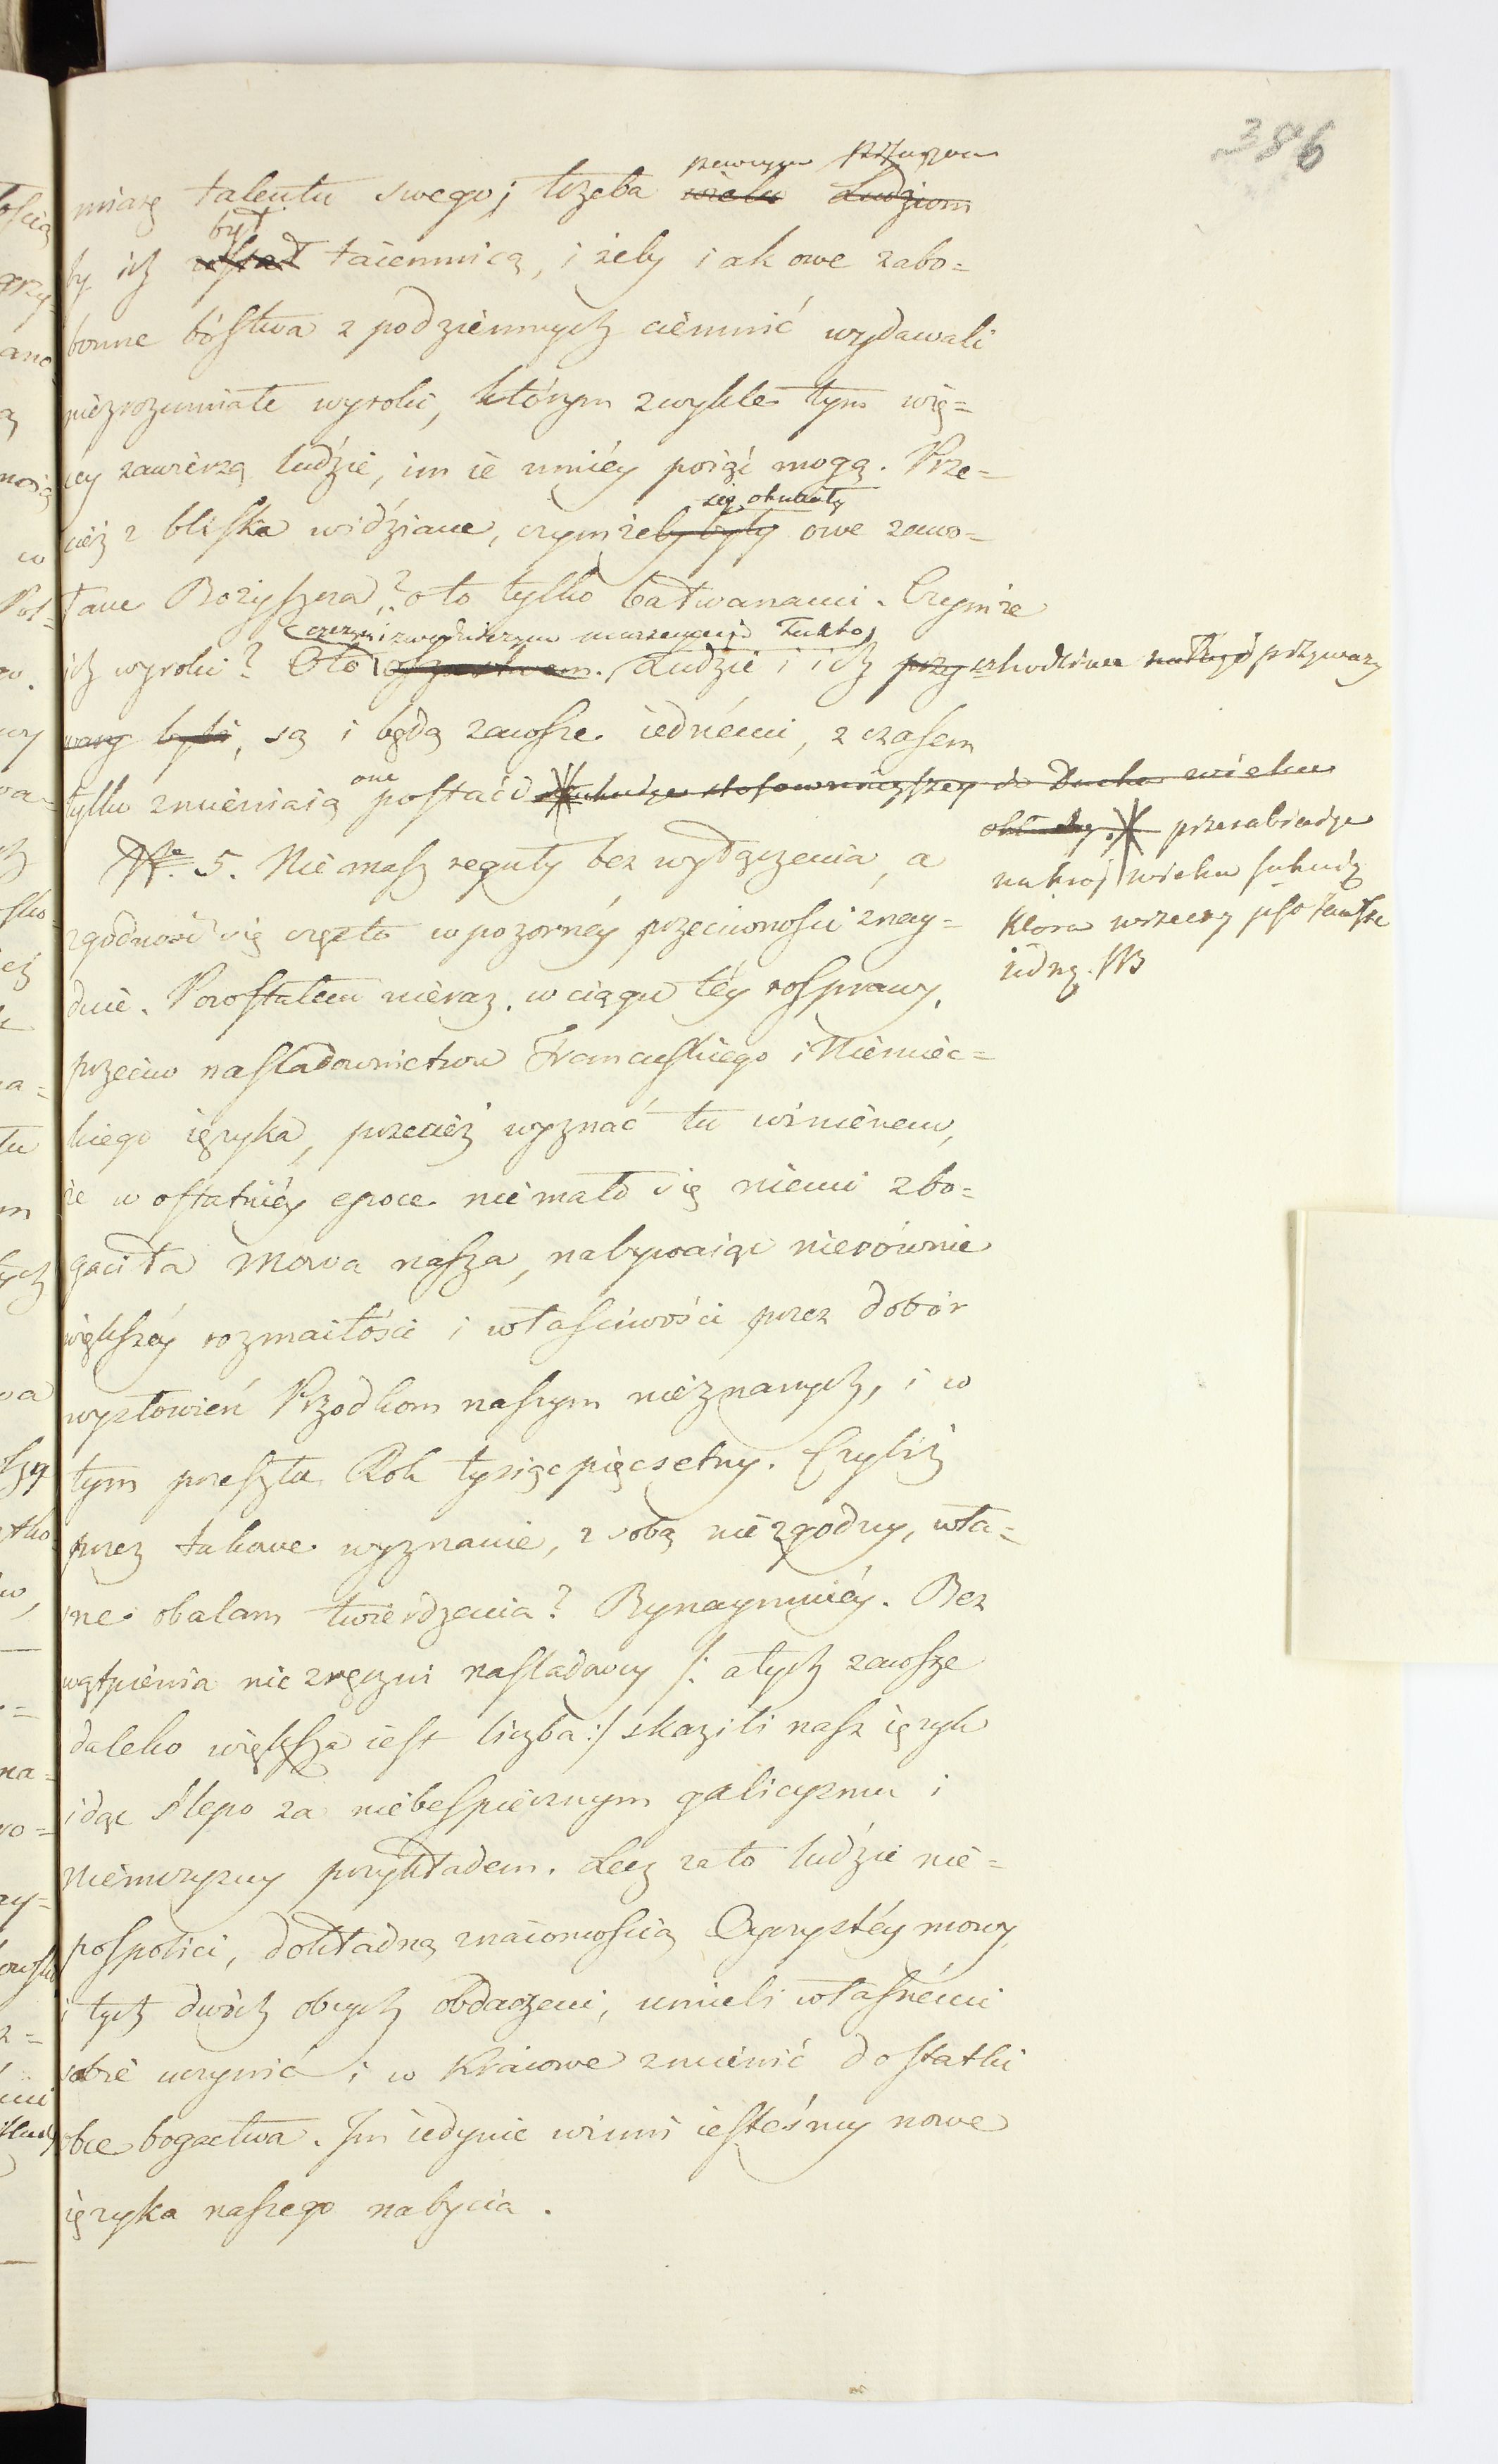 386
miarę talentu swego; trzeba wielu Ludziom
pewnym
by ich był taiemnicą, i żeby iakowe zabo=
bonne bóstwa z podziemnych ciemnić wydawali
niezrozumiałe wyroki, którym zwykle tym wię=
cey zawierzą ludzie, im ie mniéy poiąć mogą. Prze=
cież z bliska widziane, czymżeby były owe zawo=
się okazały
łane Bożyszcza? oto tylko bałwanami. Czymże
ich wyroki? Oto oszustwem. Ludzie i ich przy
wary byli, są i będą zawsze iednémi, z czasem
tylko zmieniaią one postać
stosownieyszey do Ducha wieku
obłudy. przerabiaiąc
na króy wieku suknią
która w rzeczy jest zawsze
iedną.
Nr. 5. Nie masz reguły bez wyłączenia, a
zgodność się często w pozornéy przeciwności znay=
duie. Powstałem nieraz w ciągu téy rosprawy,
przeciw nasladownictwu Francuskiego i Niemiec=
kiego ięzyka, przecież wyznać tu winienem,
że w ostatniéy epoce niemało się niemi zbo=
gaciła mowa nasza, nabywaiąc nierównie
większéy rozmaitości i właściwości przez dobór
wysłowień Przodkom naszym nieznanych, i w
tym przeszła Rok tysiącpięcsetny. Czyliż
przez takowe wyznanie, z sobą niezgodny, wła=
sne obalam twierdzenia? Bynaymniéy. Bez
wątpienia nie zręczni nasladowcy /: a tych zawsze
daleko większa iest liczba :/ skazili nasz ięzyk
idąc ślepo za niebespiecznym galicyzmu i
niemczyzny przykładem. Lecz za to ludzie nie=
pospolici, dokładną znaiomością Oyczystéy mowy,
i tych dwóch obcych obdarzeni, umieli własnémi
sobie uczynić i w Kraiowe zmienić dostatki
obce bogactwa. Im iedynie winni iesteśmy nowe
ięzyka naszego nabycia.